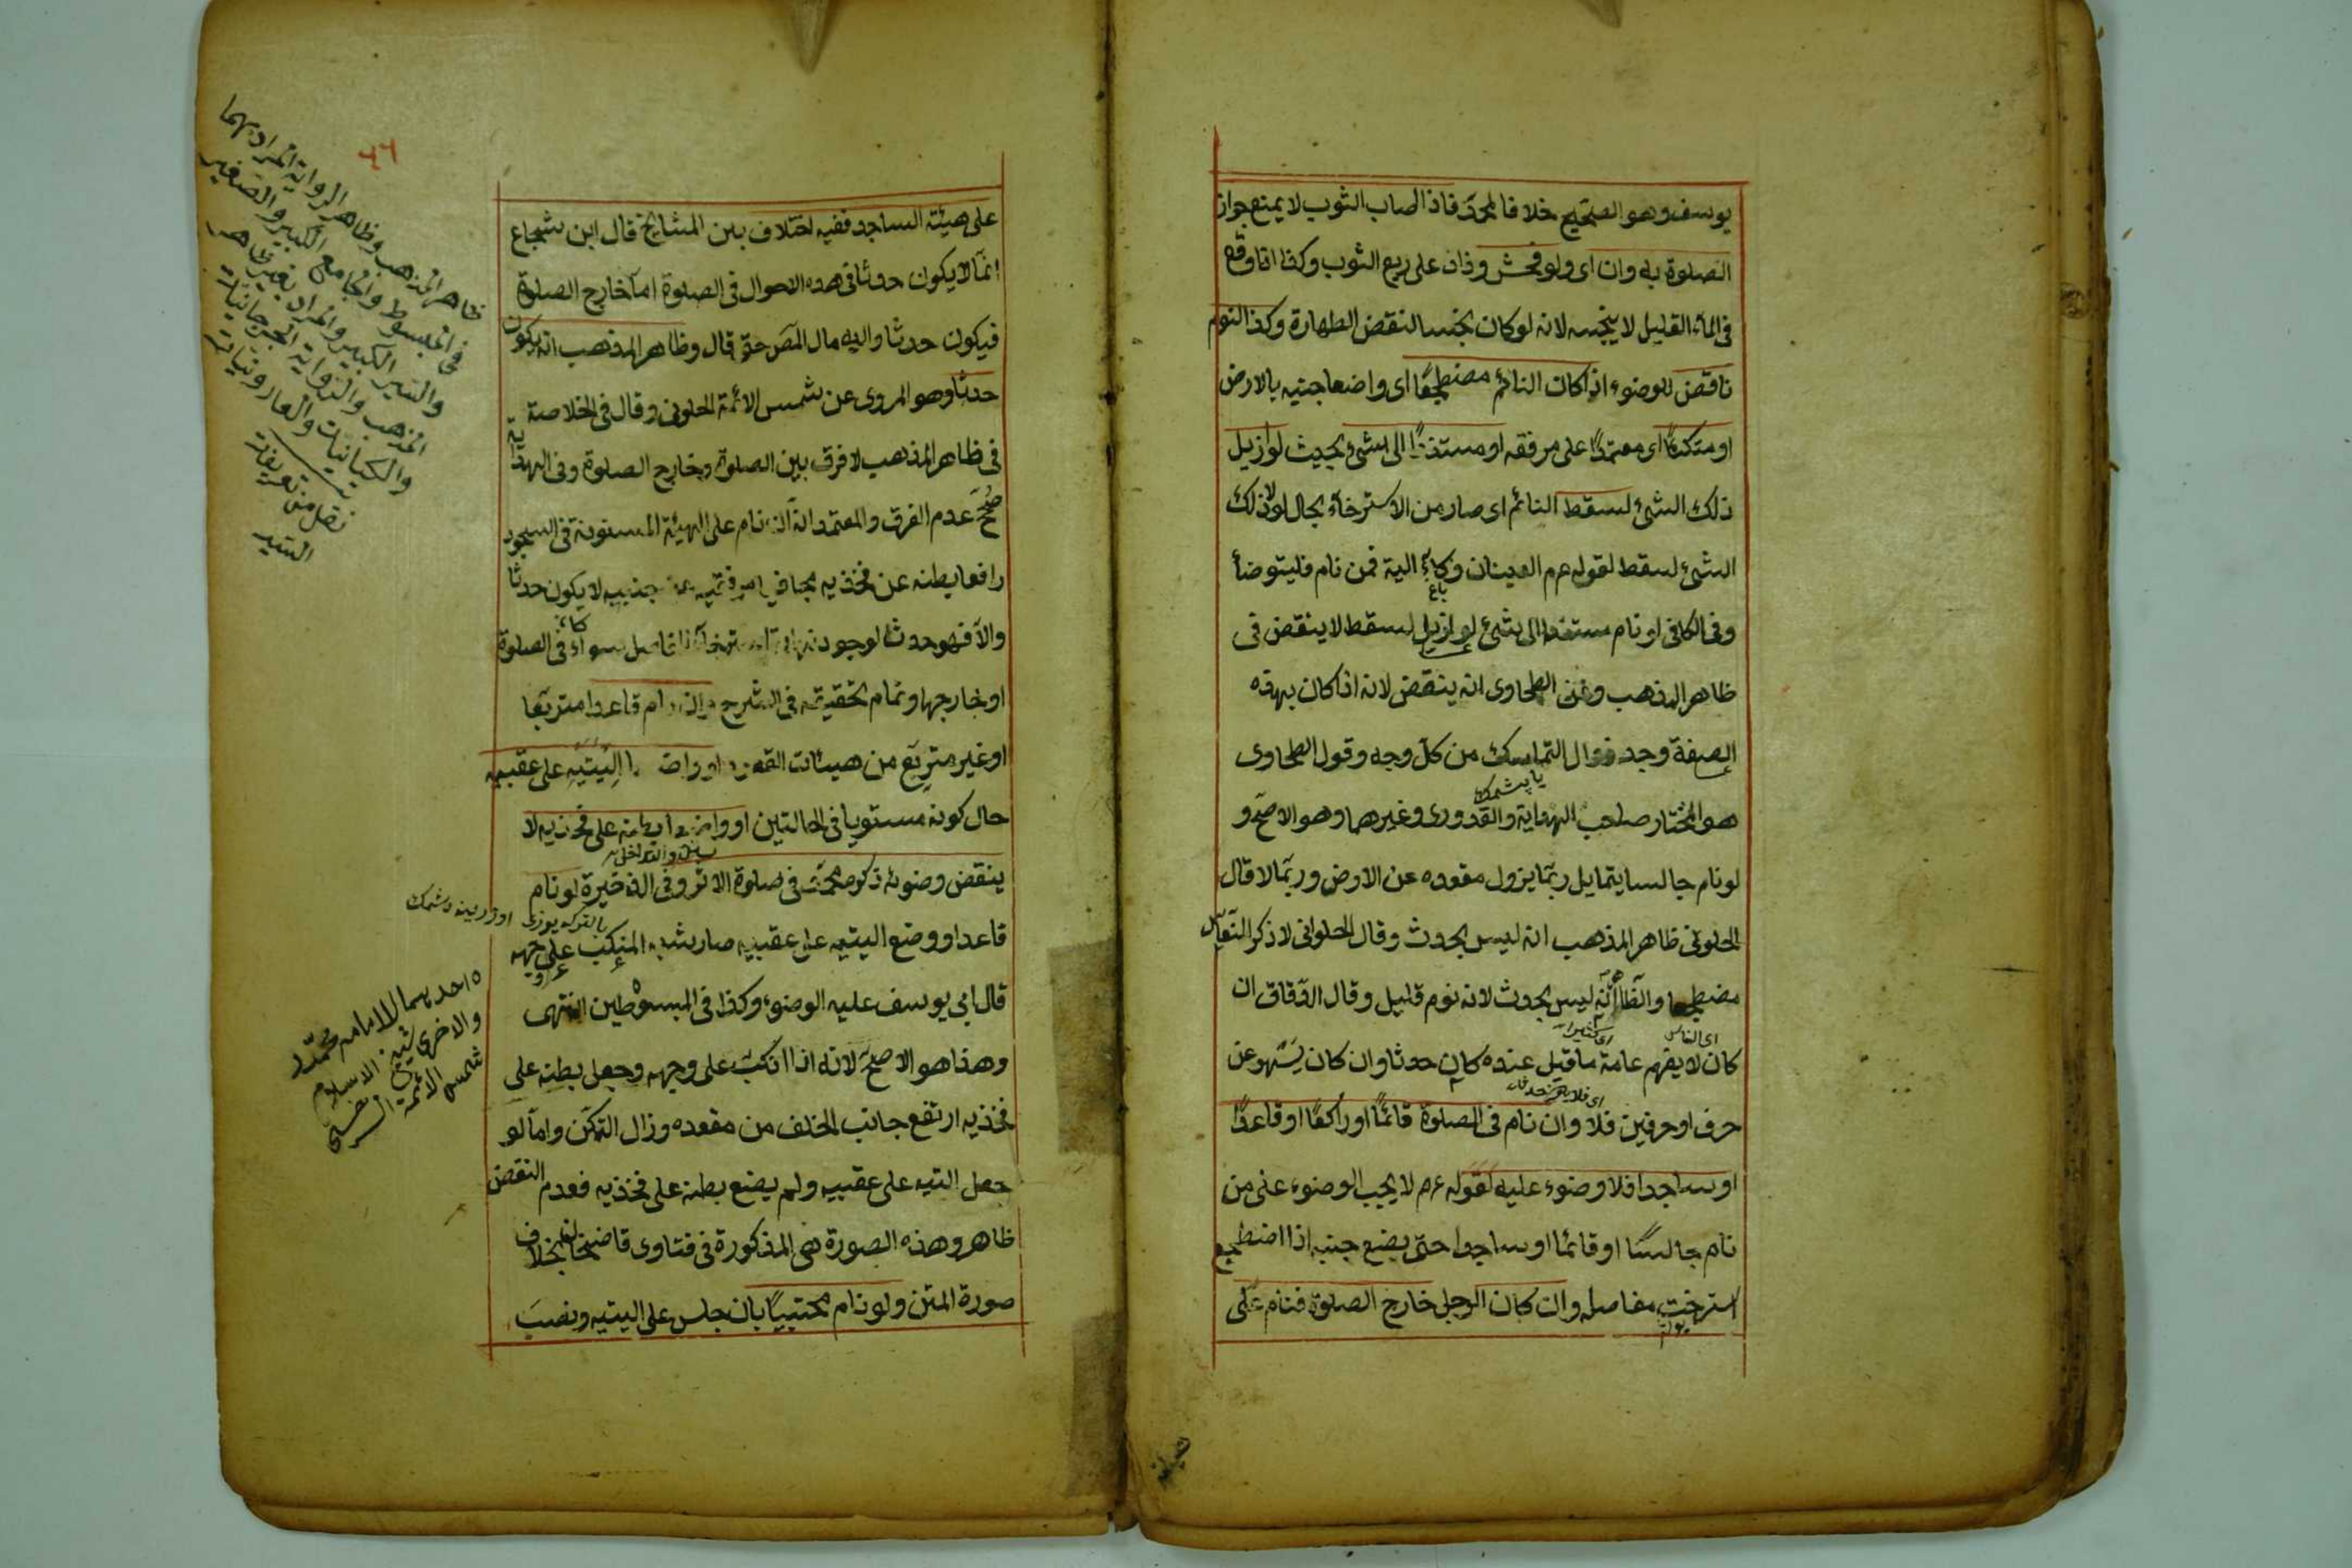 يوسف وهو الصحيح خلافا لمحمد فاذا اصاب الثوب لا يمنع جواز
الصلوة به وان اى ولو فحش وزاد على ربع الثوب وكذا اذا وقع
فى الماء القليل لا ينجسه لانه لو كان نجسا لنقض الطهارة وكذا النوم
ناقض للوضوء اذا كان النائم مضطجعًا اى واضعا جنبه بالارض
او متكئًا اى معتمدًا على مرفقه او مستندًا الى شئ بحيث لو ازيل
ذلك الشئ لسقط النائم اى صار من الاسترخاء بحال لولا ذلك
الشئ لسقط لقوله عم العينان وكاء الية فمن نام فليتوضأ
وفى الكافى لو نام مستندا الى شئ لو ازيل لسقط لا ينقض فى
ظاهر المذهب وعن الطحاوى انه ينقض لانه اذا كان بهذه
الصفة وجد زوال التماسك من كل وجه وقول الطحاوى
هو المختار صاحب الهداية والقدورى وغيرهما وهو الاصح و
لو نام جالسا يتمايل ربما يزول مقعده عن الارض وربما لا قال
الحلوانى ظاهر المذهب انه ليس بحدث وقال الحلوانى لا ذكر النعاس
مضطجعا والظاهر انه ليس بحدث لانه نوم قليل وقال الدقاق ان
كان لا يفهم عامة ما قيل عنده كان حدثا وان كان يسهو عن
حرف او حرفين فلا وان نام فى الصلوة قائمًا او راكعًا او قاعدًا
او ساجدا فلا وضوء عليه لقوله عم لا يجب الوضوء على من
نام جالسًا او قائما او ساجدا حتى يضع جنبه اذا اضطجع
استرخت مفاصله وان كان الرجل خارج الصلوة فنام على
على هيئة الساجد ففيه اختلاف بين المشايخ قال ابن شجاع
انما لا يكون حدثا فى هذه الاحوال فى الصلوة اما خارج الصلوة
فيكون حدثا واليه مال المص حتى قال وظاهر المذهب انه يكون
حدثا وهو المروى عن شمس الائمة الحلوانى وقال فى الخلاصة
فى ظاهر المذهب لا فرق بين الصلوة وخارج الصلوة وفى الهداية
صُحّحَ عدم الفرق والمعتمد انه ان نام على الهيئة المسنونة فى السجود
رافعا بطنه عن فخذيه مجافيا مرفقيه عن جنبيه لا يكون حدثا
والا فهو حدث لوجود نهاية استرخاء المفاصل سواء كان فى الصلوة
او خارجها وتمام تحقيقه فى الشرح وان نام قاعدا متربعا
او غير متربع من هيئات القعود او واضعا اليتيه على عقبيه
حال كونه مستويا فى الحالتين او واضعا بطنه على فخذيه لا
ينقض وضوئه ذكره محمد فى صلوة الاثر وفى الذخيرة لو نام
قاعدا ووضع اليتيه على عقبيه صار شبه المنكب على وجهه
قال ابى يوسف عليه الوضوء وكذا فى المبسوطين انتهى
وهذا هو الاصح لانه اذا انكب على وجهه وجعل بطنه على
فخذيه ارتفع جانب الخلف من مقعده وزال التمكن واما لو
جعل اليتيه على عقبيه ولم يضع بطنه على فخذيه فعدم النقض
ظاهر وهذه الصورة هى المذكورة فى فتاوى قاضيخان بخلاف
صورة المتن ولو نام محتبيًا بان جلس على اليتيه ونصب
٦٦
ظاهر المذهب وظاهر الرواية المراد بهما
فى المبسوط والجامع الكبير والصغير
والسير الكبير والمراد بغير ظاهر
المذهب والرواية الجرجانيات
والكيانيات والهارونيات
نقل من تعريفات
السيد
احديهما للامام محمد
والاخرى لشيخ الاسلام
شمس الائمة السرخسى